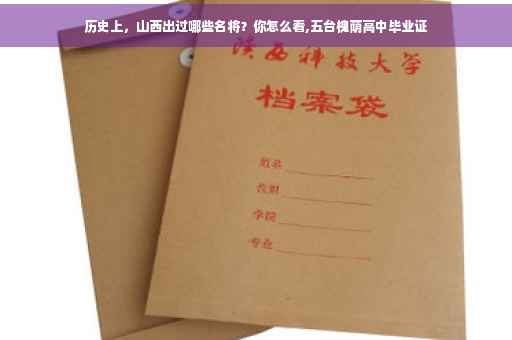 历史上，山西出过哪些名将？你怎么看,五台槐荫高中毕业证
陕西科技大学
档案袋
姓名
学院
专业